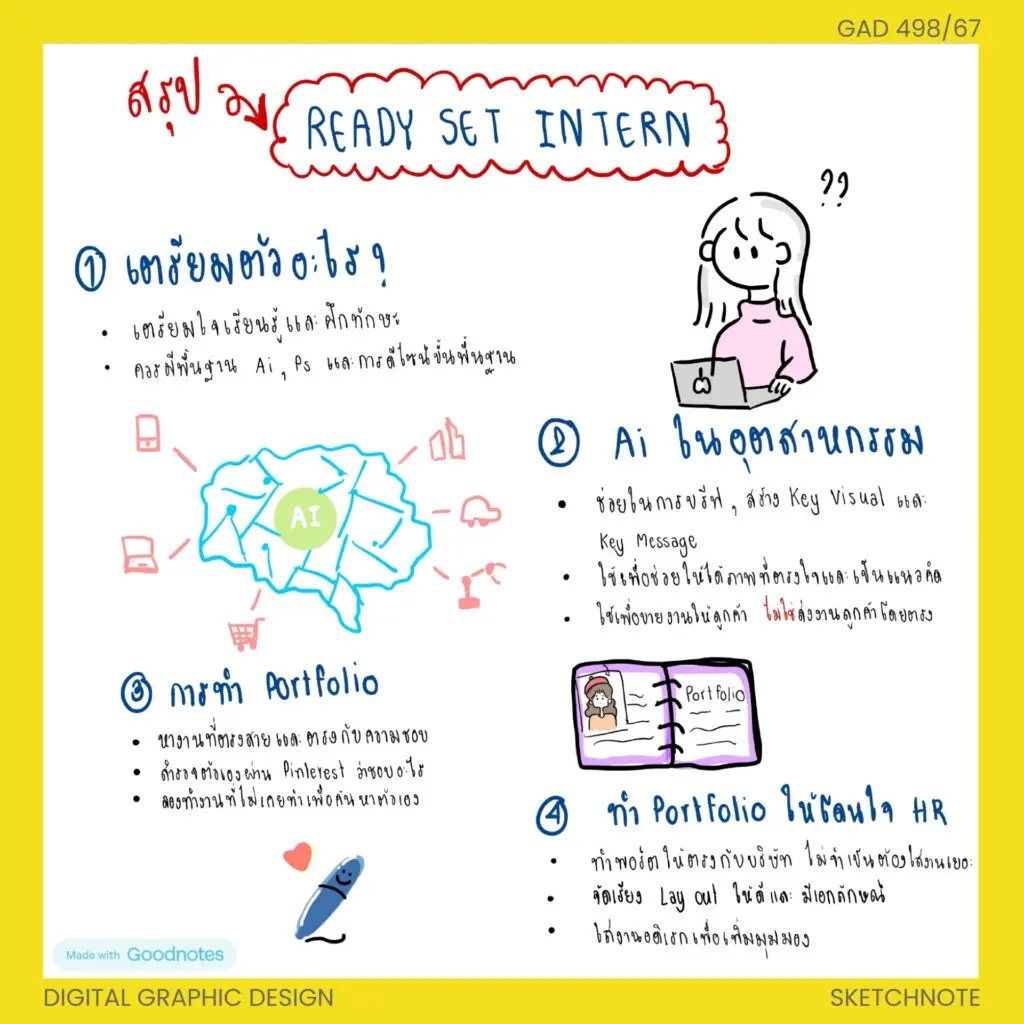 GAD 498/67
สรุป
READY SET INTERN
??
① เตรียมตัวอะไร?
• เตรียมใจเรียนรู้และฝึกทักษะ
• ควรมีพื้นฐาน Ai, Ps และการดีไซน์ขั้นพื้นฐาน
AI
② Ai ในอุตสาหกรรม
• ช่วยในการบรีฟ, สร้าง Key Visual และ
Key Message
• ใช้เพื่อช่วยให้ได้ภาพที่ตรงใจและเป็นแนวคิด
• ใช้เพื่อขายงานให้ลูกค้า ไม่ใช่ส่งงานลูกค้าโดยตรง
③ การทำ Portfolio
• หางานที่ตรงสายและตรงกับความชอบ
• สำรวจตัวเองผ่าน Pinterest ว่าชอบอะไร
• ลองทำงานที่ไม่เคยทำเพื่อค้นหาตัวเอง
Portfolio
④ ทำ Portfolio ให้โดนใจ HR
• ทำพอร์ตให้ตรงกับบริษัท ไม่จำเป็นต้องใส่งานเยอะ
• จัดเรียง Lay out ให้ดีและ มีเอกลักษณ์
• ใส่งานอดิเรกเพื่อเพิ่มมุมมอง
Made with Goodnotes
DIGITAL GRAPHIC DESIGN
SKETCHNOTE